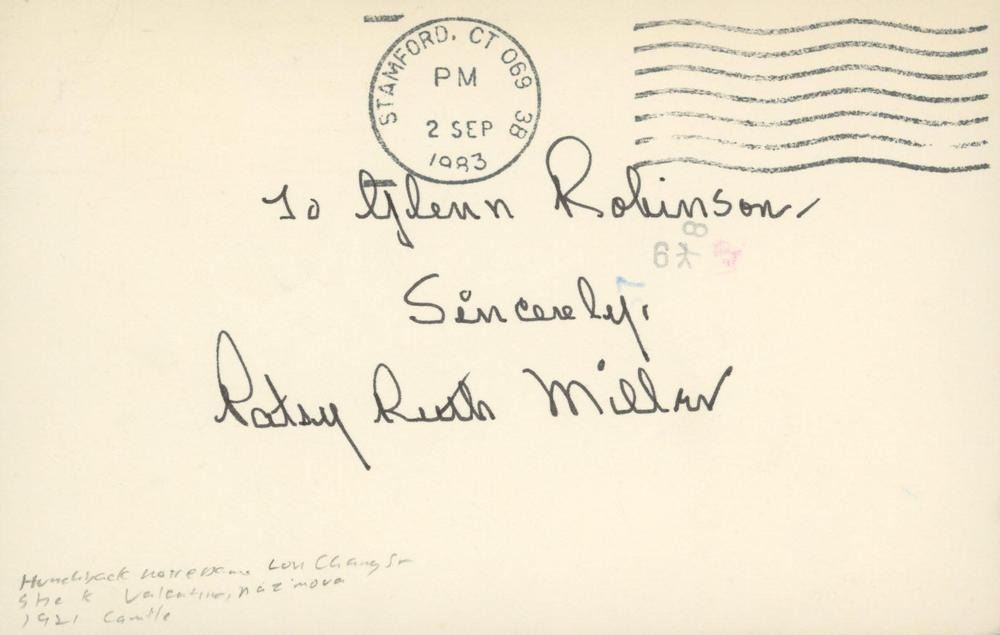 STAMFORD, CT 069 3B
PM
2 SEP
1983
To Glenn Robinson,
8
6
Sincerely,
Patsy Ruth Miller
Hunchback notre Dame Lon Chaney Sr
Valentino, nazimova
1921 Camille